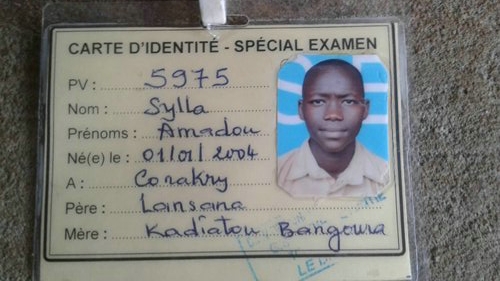 CARTE D'IDENTITÉ - SPÉCIAL EXAMEN
PV : 5975
Nom : Sylla
Prénoms : Amadou
Né(e) le : 01/01/2004
A : Conakry
Père : Lansana
Mère : Kadiatou Bangoura
LE